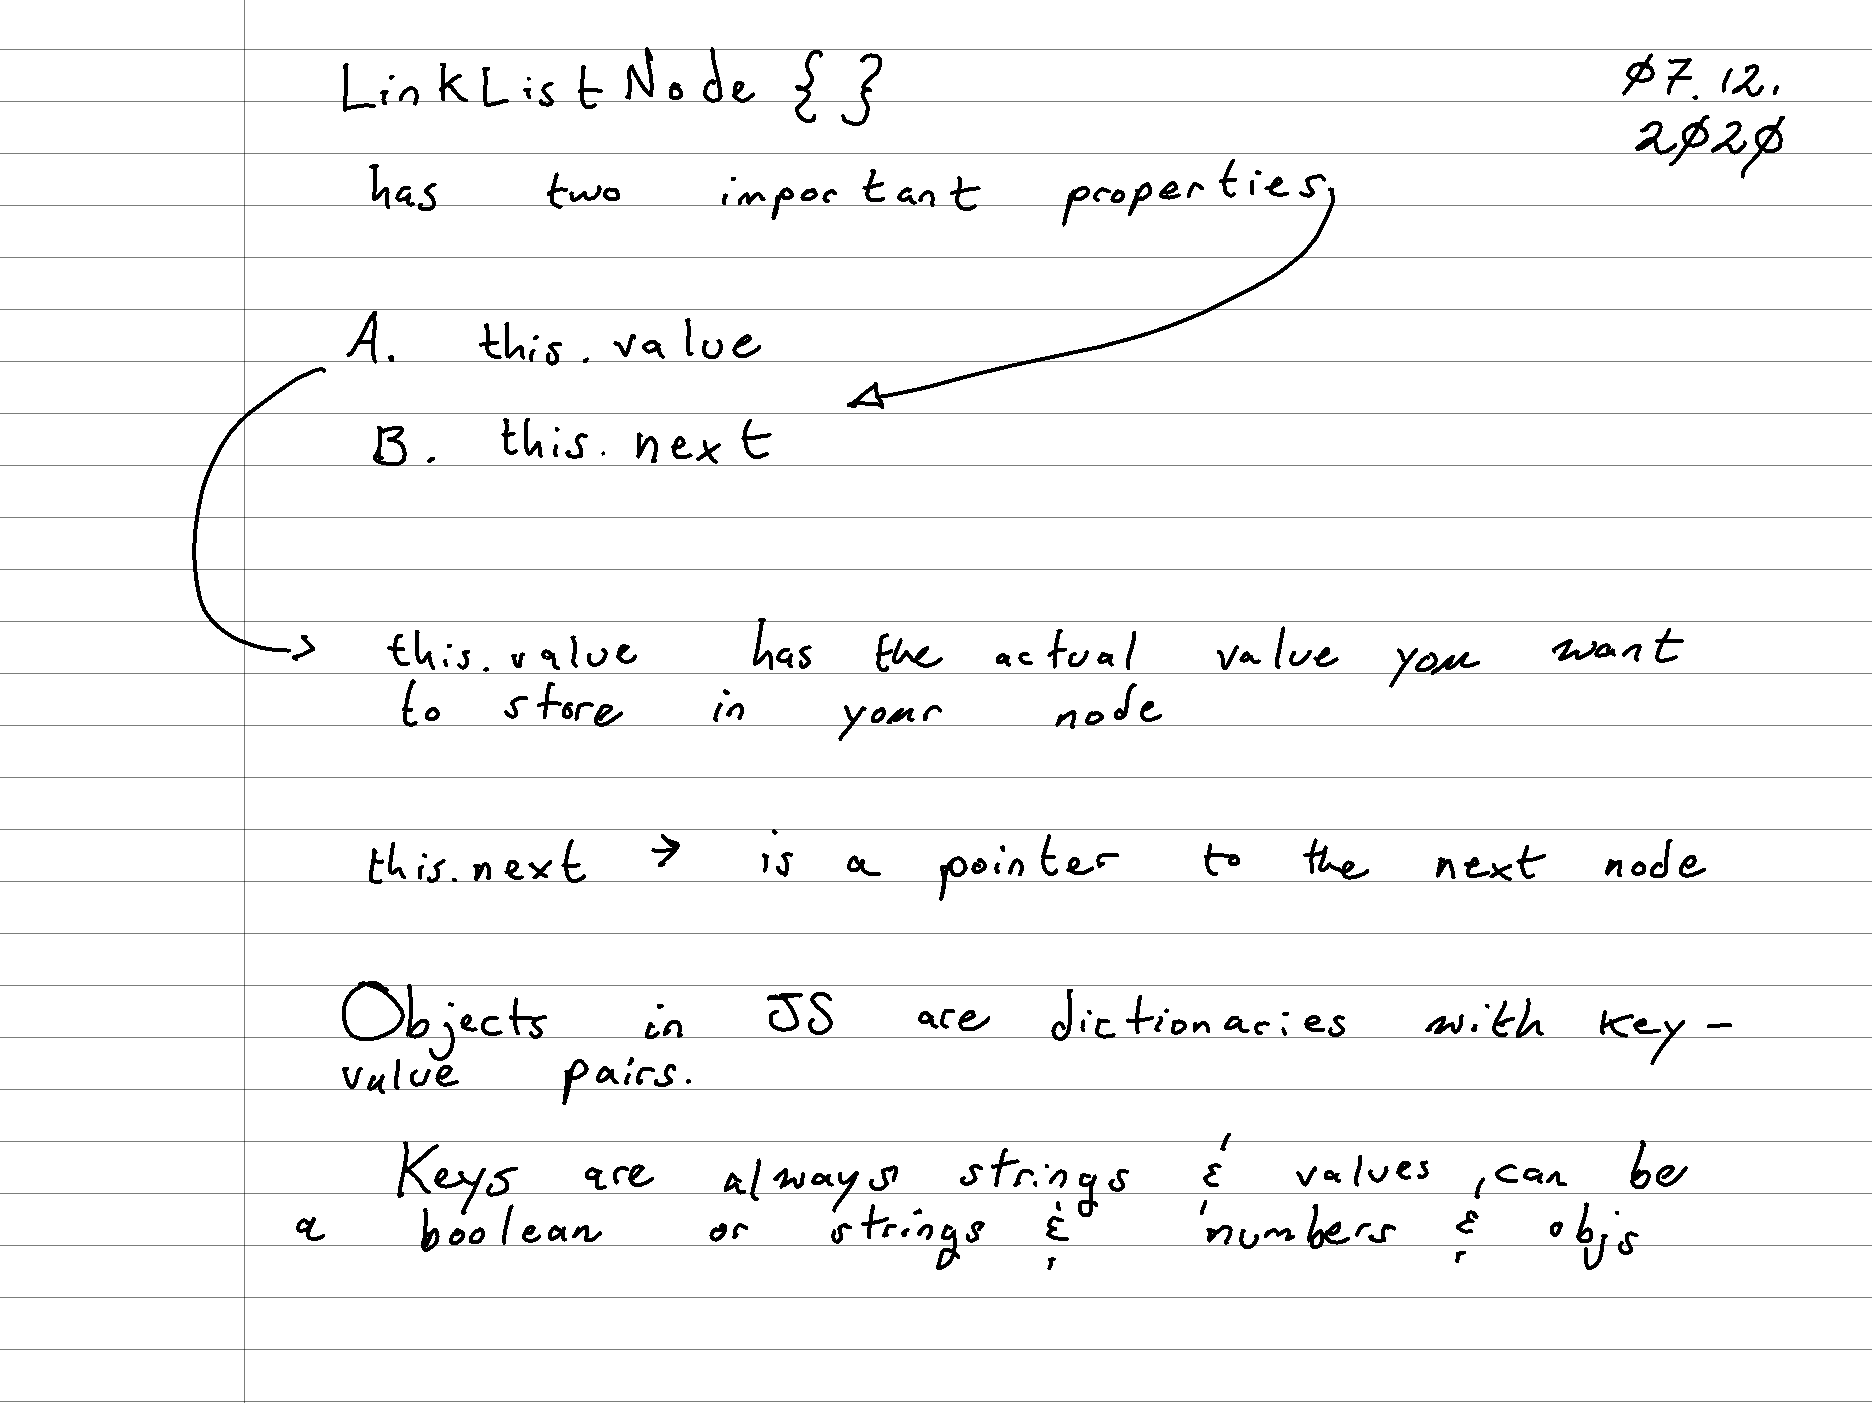 LinkListNode { }
07.12.
2020
has two important properties,
A. this.value
B. this.next
this.value has the actual value you want
to store in your node
this.next → is a pointer to the next node
Objects in JS are dictionaries with key-
value pairs.
Keys are always strings & values can be
a boolean or strings & numbers & objs